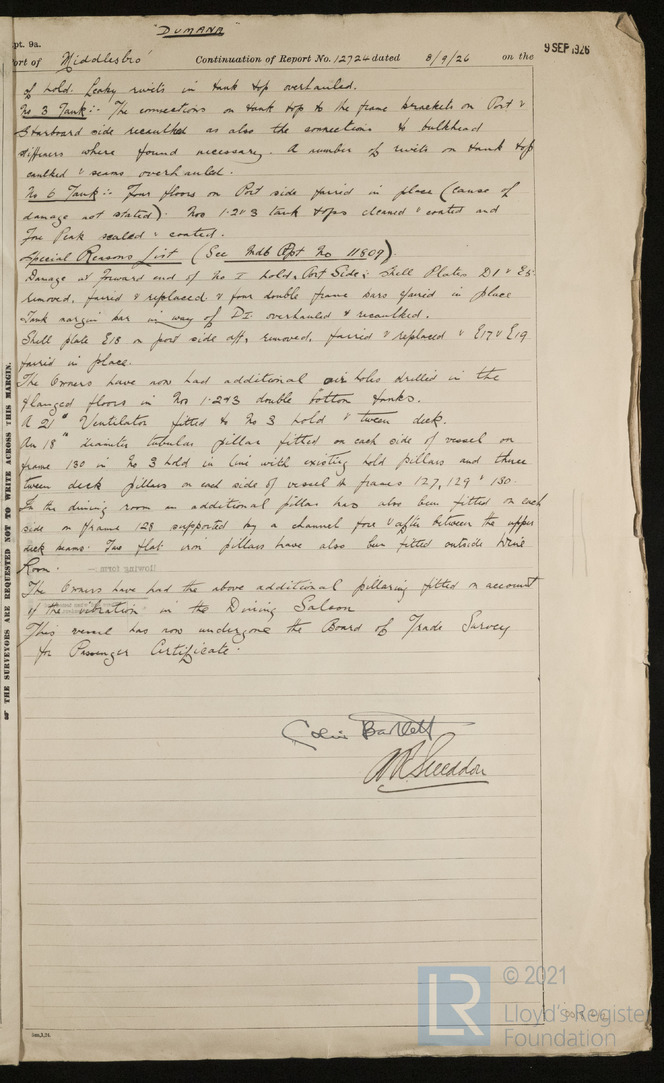 "DUMANA"
pt. 9a.
ort of Middlesbro' Continuation of Report No. 12724 dated 8/9/26 on the
9 SEP 1926
of hold. Leaky rivets in tank top overhauled.
No 3 Tank:- The connections on tank top to the frame brackets on Port &
Starboard side recaulked as also the connections to bulkhead
stiffeners where found necessary. A number of rivets on tank top
caulked & seams overhauled.
No 6 Tank:- Four floors on Port side faired in place (cause of
damage not stated). Nos 1.2 & 3 tank tops cleaned & coated and
Fore Peak scaled & coated.
Special Reasons List (See Mdb Rpt No 11809).
Damage at forward end of No I hold, Port Side: Shell Plates D1 & E5
removed, faired & replaced & four double frame bars faired in place
Tank margin bar in way of D1 overhauled & recaulked.
Shell plate E18 on port side aft, removed, faired & replaced & E17 & E19
faired in place.
The Owners have now had additional air holes drilled in the
flanged floors in Nos 1.2 & 3 double bottom tanks.
A 21" Ventilator fitted to No 3 hold & tween deck.
An 18" diameter tubular pillar fitted on each side of vessel on
frame 130 in No 3 hold in line with existing hold pillars and three
tween deck pillars on each side of vessel to frames 127, 129 & 130.
In the dining room an additional pillar has also been fitted on each
side on frame 128 supported by a channel fore & aft between the upper
deck beams. Two flat iron pillars have also been fitted outside Wine
Room.
The Owners have had the above additional pillaring fitted on account
of the vibration in the Dining Saloon
This vessel has now undergone the Board of Trade Survey
for Passenger Certificate.
Colin Bartlett
THE SURVEYORS ARE REQUESTED NOT TO WRITE ACROSS THIS MARGIN.
LR © 2021
Lloyd's Register
Foundation